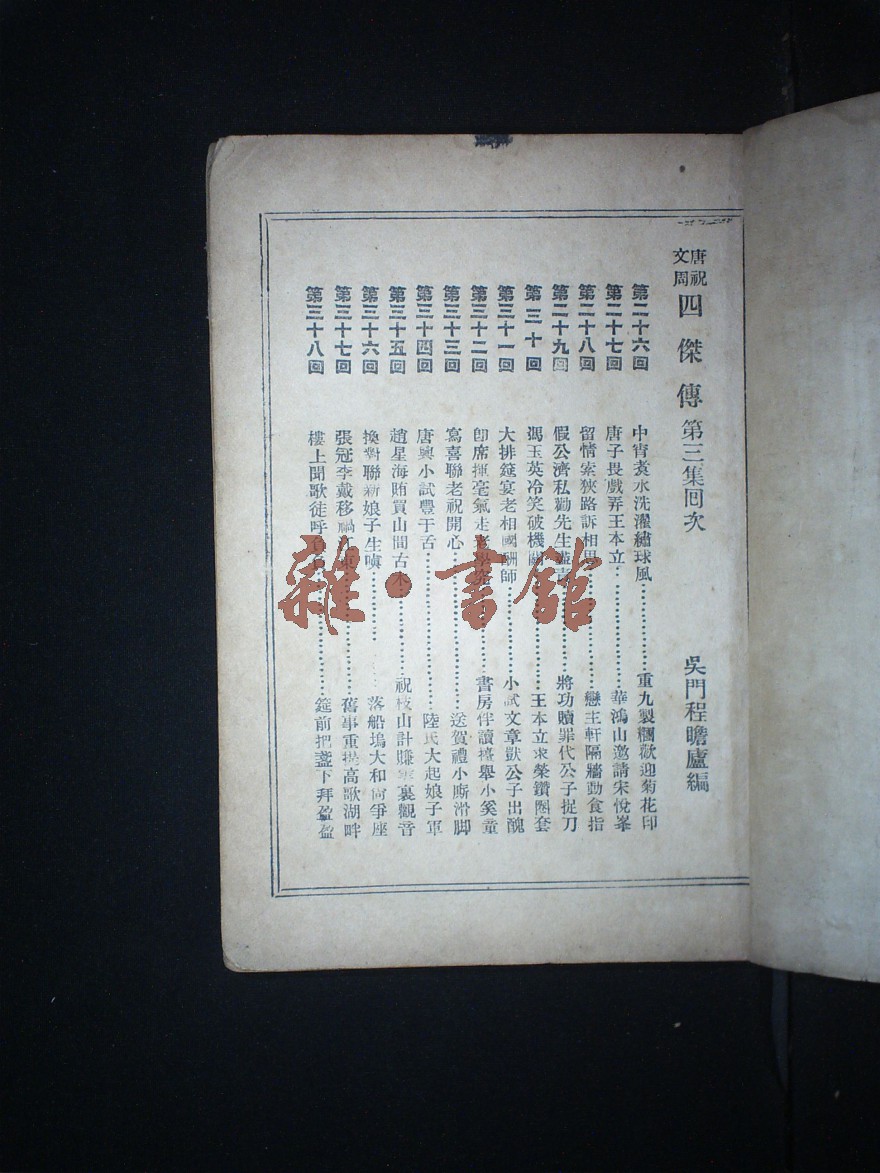 唐祝文周四傑傳第三集回次
吳門程瞻廬編
第二十六回 中宵袁水洗濯繡球風……重九製糰歡迎菊花印
第二十七回 唐子畏戲弄王本立……華鴻山邀請宋悅峯
第二十八回 留情索狹路訴相思……戀主軒隔牆動食指
第二十九回 假公濟私勸先生盡……將功贖罪代公子捉刀
第三十回 馮玉英冷笑破機關……王本立求榮鑽圈套
第三十一回 大排筵宴老相國酬師……小試文章獃公子出醜
第三十二回 卽席揮毫氣走老學究……書房伴讀擡舉小奚童
第三十三回 寫喜聯老祝開心……送賀禮小廝滑脚
第三十四回 唐興小試豐干舌……陸氏大起娘子軍
第三十五回 趙星海賄買山間古木……祝枝山計賺雲裏觀音
第三十六回 換對聯新娘子生嗔……落船塢大和尚爭座
第三十七回 張冠李戴移禍江東……舊事重提高歌湖畔
第三十八回 樓上聞歌徒呼負負……筵前把盞下拜盈盈
雜·書館